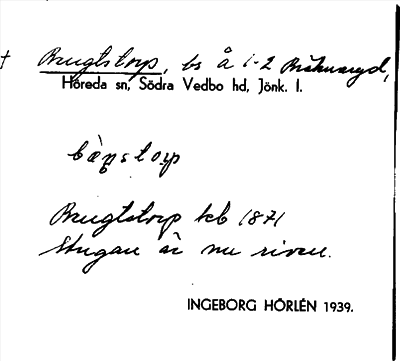 † Bengtstorp, bs å 1-2 Bräknaryd,
Höreda sn, Södra Vedbo hd, Jönk. l.
bàŋstorp
Bengtstorp kb 1871
Stugan är nu riven.
INGEBORG HÖRLÉN 1939.